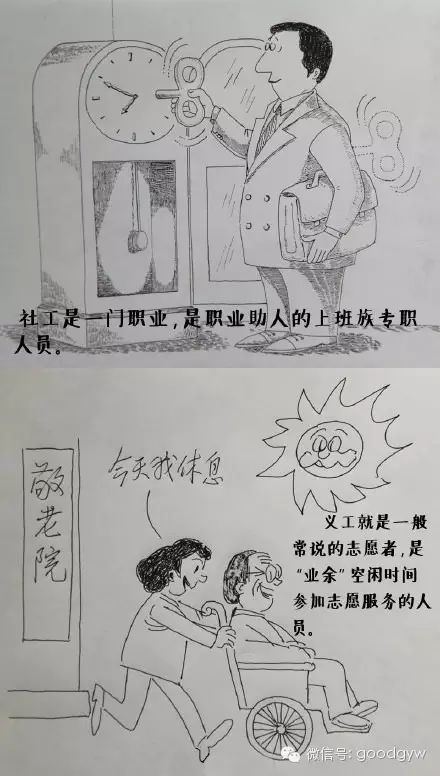 社工是一门职业,是职业助人的上班族专职
人员。
今天我休息
敬老院
义工就是一般
常说的志愿者,是
“业余”空闲时间
参加志愿服务的人
员。
微信号: goodgyw